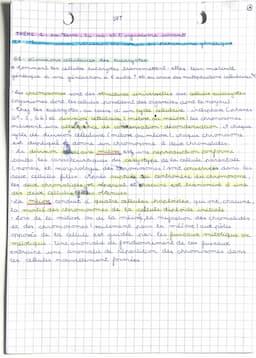 SVT
THÈME 1: La Terre, la vie et l'organisation du vivant
génétique
C1: divisions cellulaires des eucaryotes
comment les cellules eucaryotes transmettent-elles leur matériel
génétique de une génération à l'autre? et au cours des multiplications cellulaires?
Les chromosomes sont des structures universelles aux cellules eucaryotes
(organismes dont les cellules possèdent des organites dont le noyau)
Chez les eucaryotes, au cours d'un cycle cellulaire: interphase (phases
G1, S, G2) et division cellulaire (mitose ou méiose) les chromosomes
présentent une alternance de condensation-décondensation. A chaque
cycle de division cellulaire (mitose ou méiose), chaque chromosome
est dupliqué et donne un chromosome à deux chromatides.
La division cellulaire mitose est une reproduction conforme
toutes les caractéristiques des caryotypes de la cellule parentale
(nombre et morphologie des chromosomes) sont conservées dans les
deux cellules filles. Après rupture du centromère du chromosome,
les deux chromatides se séparent et chacune est transmise à une
des deux cellules obtenues.
La méiose conduit à quatre cellules haploïdes, qui ont chacune,
la moitié des chromosomes de la cellule diploïde initiale
Lors de la mitose ou de la méiose, la migration des chromatides
et des chromosomes (seulement pour la méiose) aux pôles
opposés de la cellule est guidée par les fuseaux mitotique ou
méiotique. Une anomalie de fonctionnement de ces fuseaux
entraîne une anomalie de répartition des chromosomes dans
les cellules nouvellement formées.